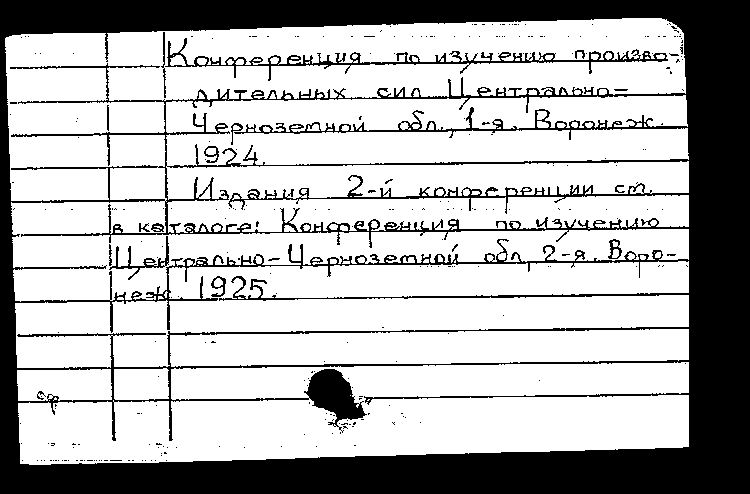 Конференция по изучению произво-
дительных сил Центрально=
Черноземной обл., 1-я. Воронеж.
1924.
Издания 2-й конференции см.
в каталоге: Конференция по изучению
Центрально-Черноземной обл, 2-я. Воро-
неж. 1925.